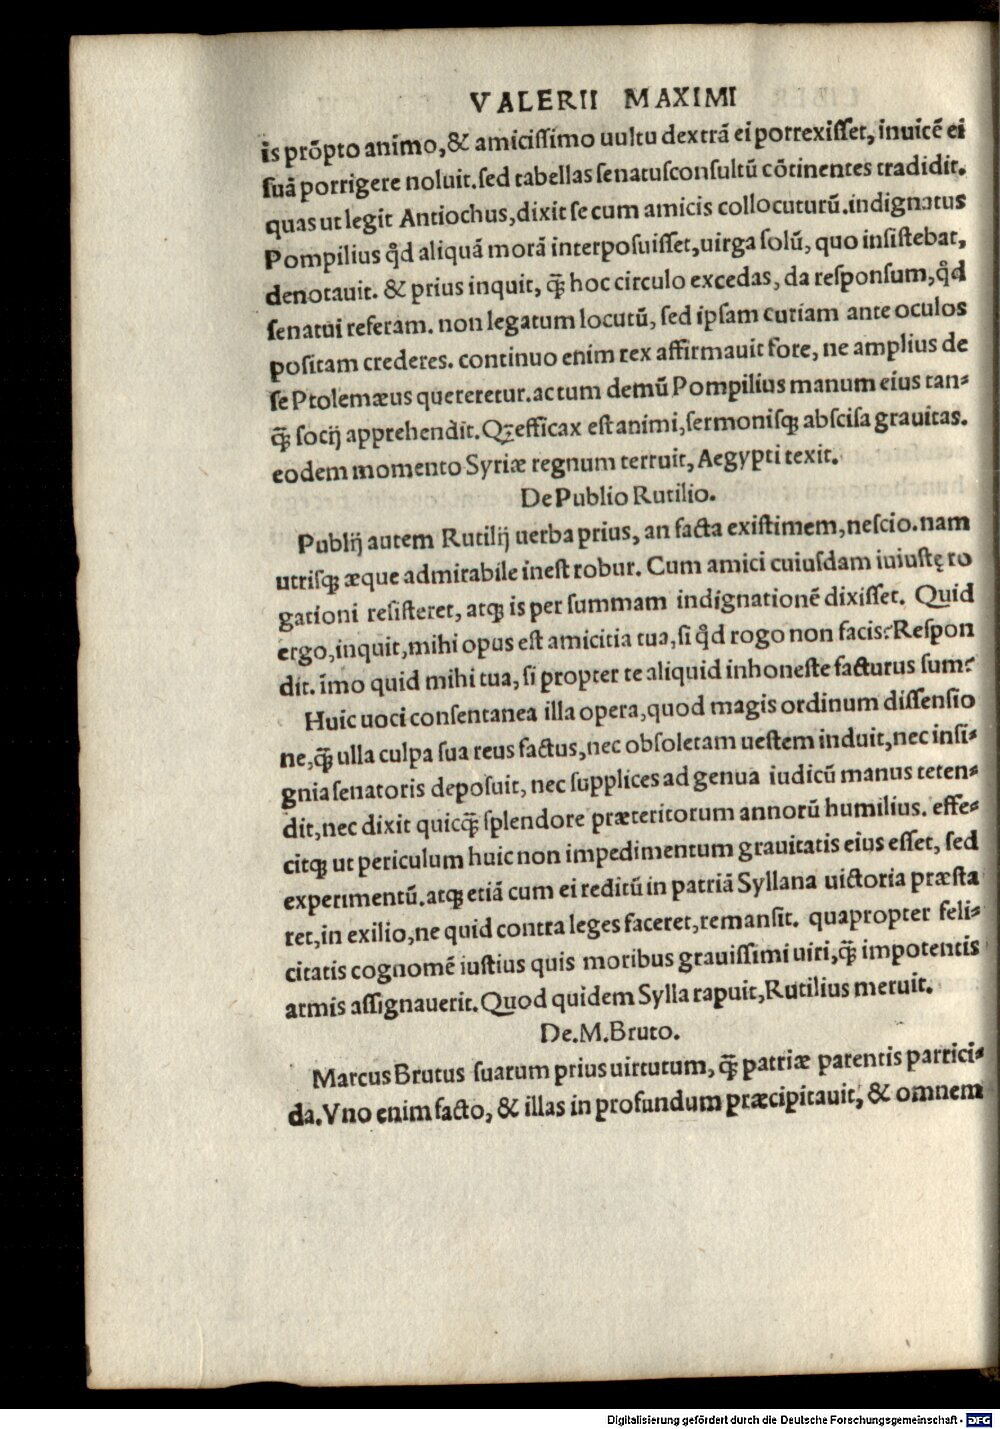 VALERII MAXIMI
is prõpto animo, & amicissimo uultu dextrã ei porrexisset, inuicẽ ei
suã porrigere noluit. sed tabellas senatusconsultũ cõtinentes tradidit.
quas ut legit Antiochus, dixit se cum amicis collocuturũ. indignatus
Pompilius qđ aliquã morã interposuisset, uirga solũ, quo insistebat,
denotauit. & prius inquit, q̃ hoc circulo excedas, da responsum, qđ
senatui referam. non legatum locutũ, sed ipsam curiam ante oculos
positam crederes. continuo enim rex affirmauit fore, ne amplius de
se Ptolemæus quereretur. ac tum demũ Pompilius manum eius tan-
q̃ socij apprehendit. Qꝫ efficax est animi, sermonisqꝫ abscisa grauitas.
eodem momento Syriæ regnum terruit, Aegypti texit.
De Publio Rutilio.
Publij autem Rutilij uerba prius, an facta existimem, nescio. nam
utrisqꝫ æque admirabile inest robur. Cum amici cuiusdam iuiustę ro
gationi resisteret, atqꝫ is per summam indignationẽ dixisset. Quid
ergo, inquit, mihi opus est amicitia tua, si qđ rogo non facis? Respon
dit. ĩmo quid mihi tua, si propter te aliquid inhoneste facturus sum?
Huic uoci consentanea illa opera, quod magis ordinum dissensio
ne, q̃ ulla culpa sua reus factus, nec obsoletam uestem induit, nec insi-
gnia senatoris deposuit, nec supplices ad genua iudicũ manus teten-
dit, nec dixit quicq̃ splendore præteritorum annorũ humilius. effe-
citqꝫ ut periculum huic non impedimentum grauitatis eius esset, sed
experimentũ. atqꝫ etiã cum ei reditũ in patriã Syllana uictoria præsta
ret, in exilio, ne quid contra leges faceret, remansit. quapropter feli-
citatis cognomẽ iustius quis moribus grauissimi uiri, q̃ impotentis
armis assignauerit. Quod quidem Sylla rapuit, Rutilius meruit.
De. M. Bruto.
Marcus Brutus suarum prius uirtutum, q̃ patriæ parentis parrici-
da. Vno enim facto, & illas in profundum præcipitauit, & omnem
Digitalisierung gefördert durch die Deutsche Forschungsgemeinschaft - DFG